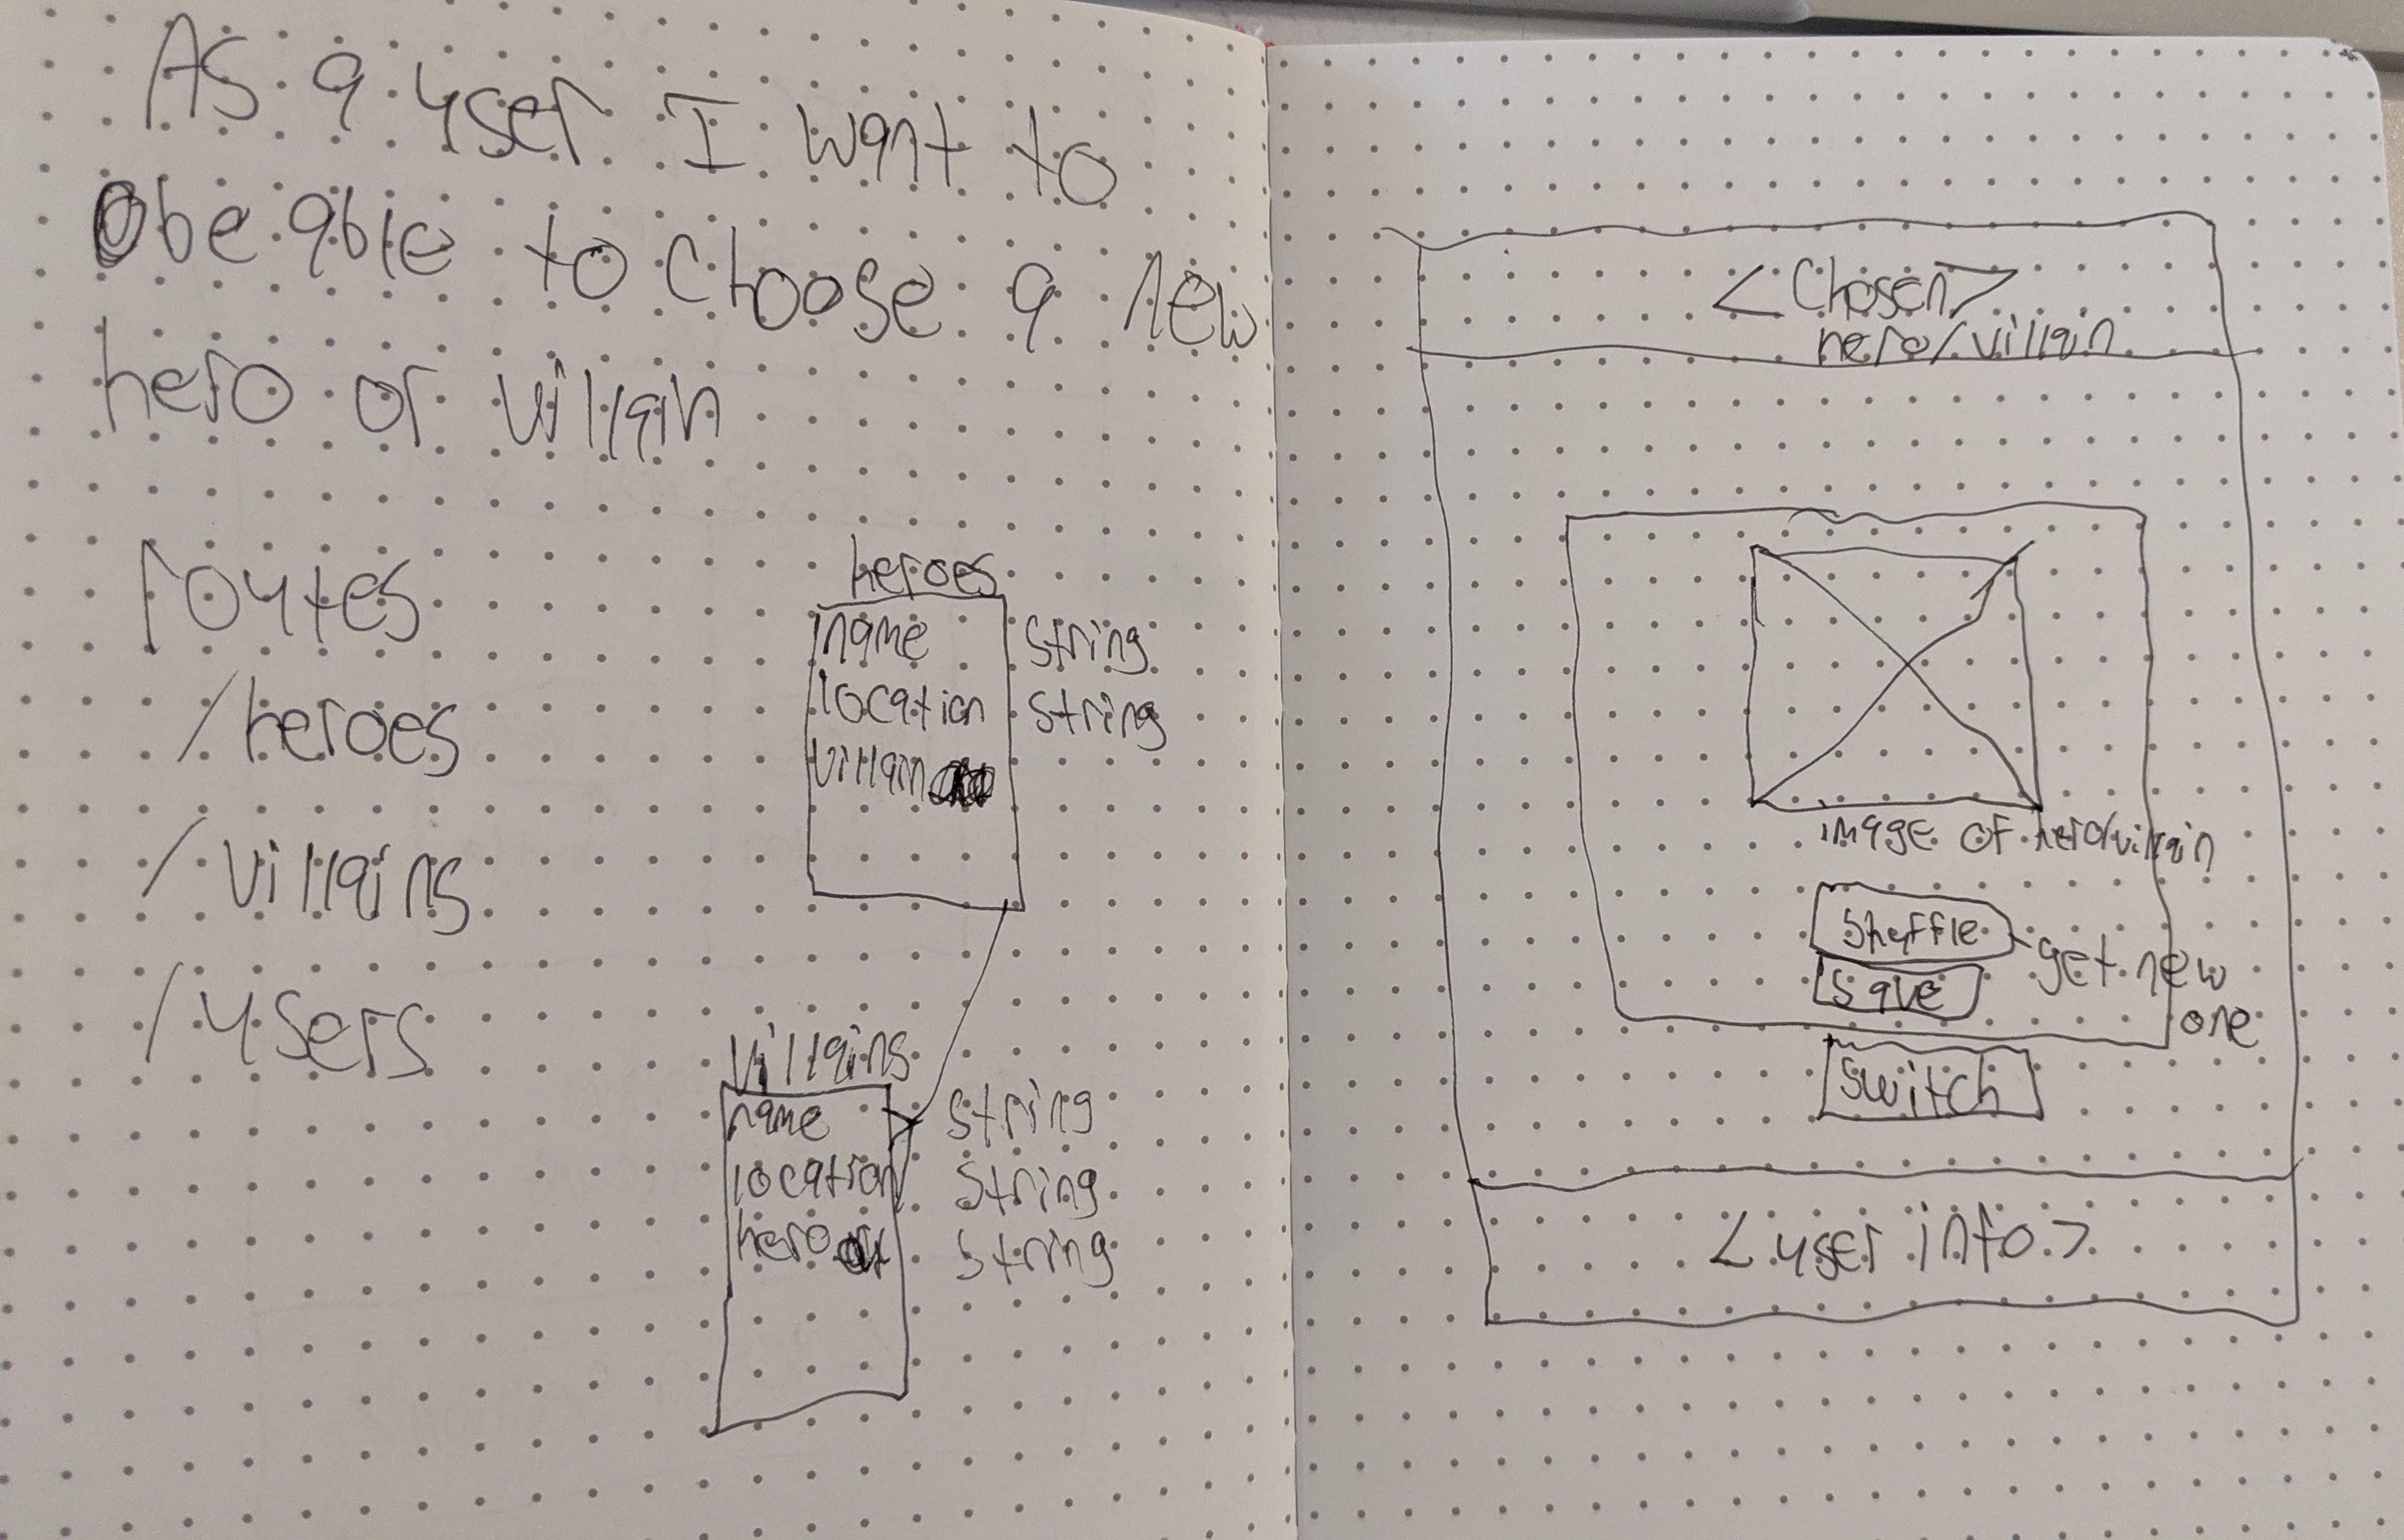 As a user I want to
be able to choose a new
hero or villain
routes
/heroes
/villains
/users
heroes
name string
location string
villain
villains
name string
location string
hero string
<Chosen>
hero/villain
image of hero/villain
shuffle
get new
one
save
switch
<user info>